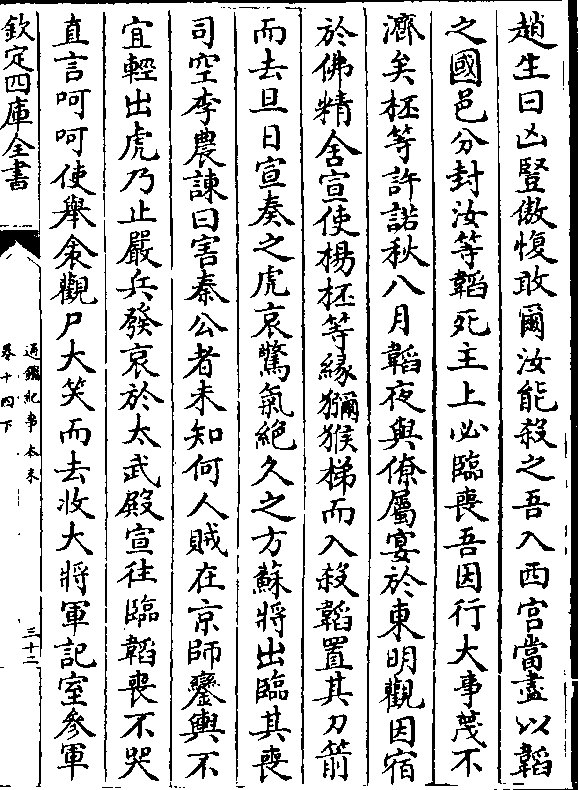 趙生曰凶豎傲愎敢爾汝能殺之吾入西宫當盡以韜
之國邑分封汝等韜死主上必臨喪吾因行大事蔑不
濟矣柸等許諾秋八月韜夜與僚屬宴於東明觀因宿
於佛精舍宣使楊柸等緣獼猴梯而入殺韜置其刀箭
而去旦日宣奏之虎哀驚氣絶久之方蘇將出臨其喪
司空李農諫曰害秦公者未知何人賊在京師鑾輿不
宜輕出虎乃止嚴兵發哀於太武殿宣往臨韜喪不哭
直言呵呵使舉衾觀尸大笑而去收大將軍記室參軍
欽定四庫全書
通鑑紀事本末
卷十四下
三十二